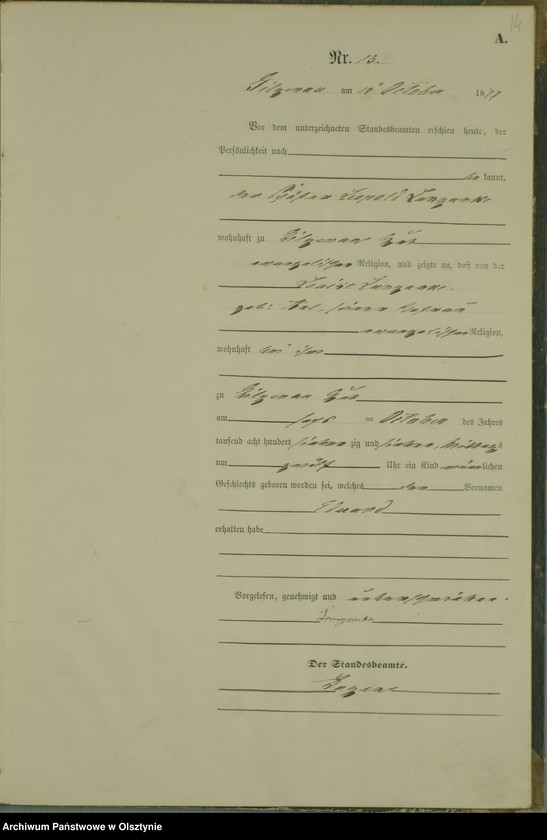 14
A.
Nr. 13.
am 12 October 1877
Vor dem unterzeichneten Standesbeamten erschien heute, der
Persönlichkeit nach
be kannt,
der Leopold
wohnhaft zu Gut
evangelischer Religion, und zeigte an, daß von der
Louise
geb: seiner Ehefrau
evangelischer Religion,
wohnhaft bei ihm
zu Gut
am sechs ten October des Jahres
tausend acht hundert sieben zig und sieben, Mittags
um zwölf Uhr ein Kind männlichen
Geschlechts geboren worden sei, welches den Vornamen
Eduard
erhalten habe
Vorgelesen, genehmigt und unterschrieben.
Der Standesbeamte.
Archiwum Państwowe w Olsztynie